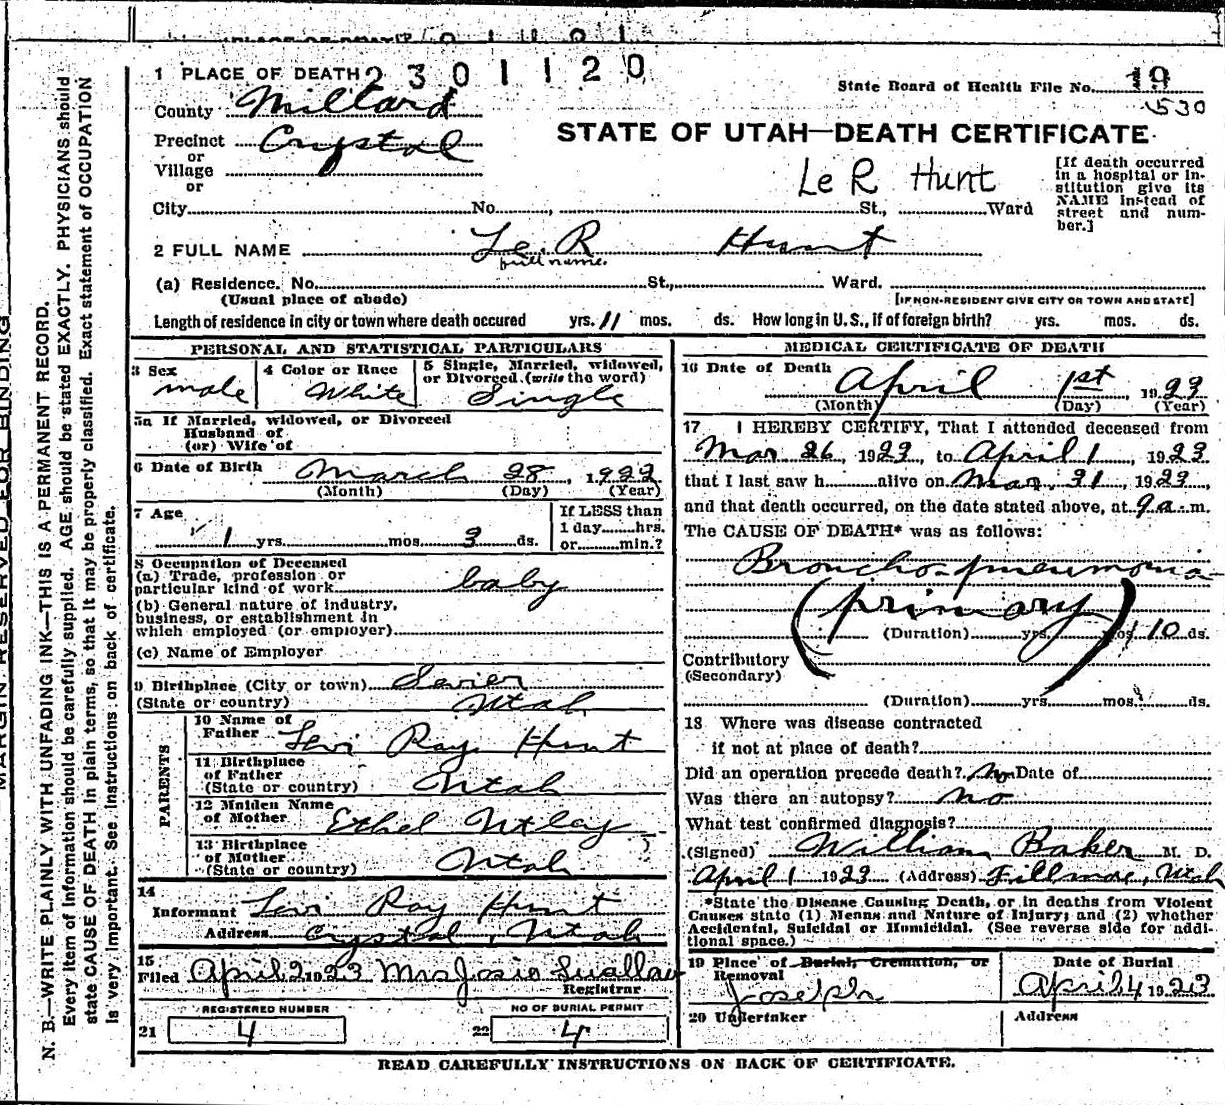 1 PLACE OF DEATH 2 3 0 1 1 2 0
State Board of Health File No. 19
530
County Millard
STATE OF UTAH—DEATH CERTIFICATE
Precinct Crystal
or
Village
or
Le R Hunt
[If death occurred
in a hospital or in-
stitution give its
NAME instead of
street and num-
ber.]
City No. , St., Ward
2 FULL NAME Le. R Hunt
full name.
(a) Residence. No. St., Ward.
(Usual place of abode) [IF NON-RESIDENT GIVE CITY OR TOWN AND STATE]
Length of residence in city or town where death occured yrs. 11 mos. ds. How long in U.S., if of foreign birth? yrs. mos. ds.
PERSONAL AND STATISTICAL PARTICULARS
3 Sex male
4 Color or Race White
5 Single, Married, widowed,
or Divorced. (write the word)
Single
5a If Married, widowed, or Divorced
Husband of
(or) Wife of
6 Date of Birth March 28, 1922
(Month) (Day) (Year)
7 Age
1 yrs. mos. 3 ds.
If LESS than
1 day hrs.
or min.?
8 Occupation of Deceased
(a) Trade, profession or
particular kind of work baby
(b) General nature of industry,
business, or establishment in
which employed (or employer)
(c) Name of Employer
9 Birthplace (City or town) Sevier
(State or country) Utah
PARENTS
10 Name of
Father Levi Ray Hunt
11 Birthplace
of Father
(State or country) Utah
12 Maiden Name
of Mother Ethel Utley
13 Birthplace
of Mother
(State or country) Utah
14
Informant Levi Ray Hunt
Address Crystal, Utah
15
Filed April 2 1923 Mrs Josie Swallow
Registrar
REGISTERED NUMBER
21 4
NO OF BURIAL PERMIT
22 4
MEDICAL CERTIFICATE OF DEATH
16 Date of Death April 1st 1923
(Month) (Day) (Year)
17 I HEREBY CERTIFY, That I attended deceased from
Mar 26, 1923, to April 1, 1923
that I last saw h alive on Mar. 31, 1923,
and that death occurred, on the date stated above, at 9 a. m.
The CAUSE OF DEATH* was as follows:
Broncho-pneumonia
(primary)
(Duration) yrs. mos. 10 ds.
Contributory
(Secondary)
(Duration) yrs. mos. ds.
18 Where was disease contracted
if not at place of death?
Did an operation precede death? No Date of
Was there an autopsy? no
What test confirmed diagnosis?
(Signed) William Baker M. D.
April 1 1923 (Address) Fillmore, Utah
*State the Disease Causing Death, or in deaths from Violent
Causes state (1) Menns and Nature of Injury; and (2) whether
Accidental, Suicidal or Homicidal. (See reverse side for addi-
tional space.)
19 Place of Burial, Cremation, or
Removal
Joseph
Date of Burial
April 4 1923
20 Undertaker
Address
READ CAREFULLY INSTRUCTIONS ON BACK OF CERTIFICATE.
MARGIN RESERVED FOR BINDING
N. B.—WRITE PLAINLY WITH UNFADING INK—THIS IS A PERMANENT RECORD.
Every item of information should be carefully supplied. AGE should be stated EXACTLY. PHYSICIANS should
state CAUSE OF DEATH in plain terms, so that it may be properly classified. Exact statement of OCCUPATION
is very important. See instructions on back of certificate.